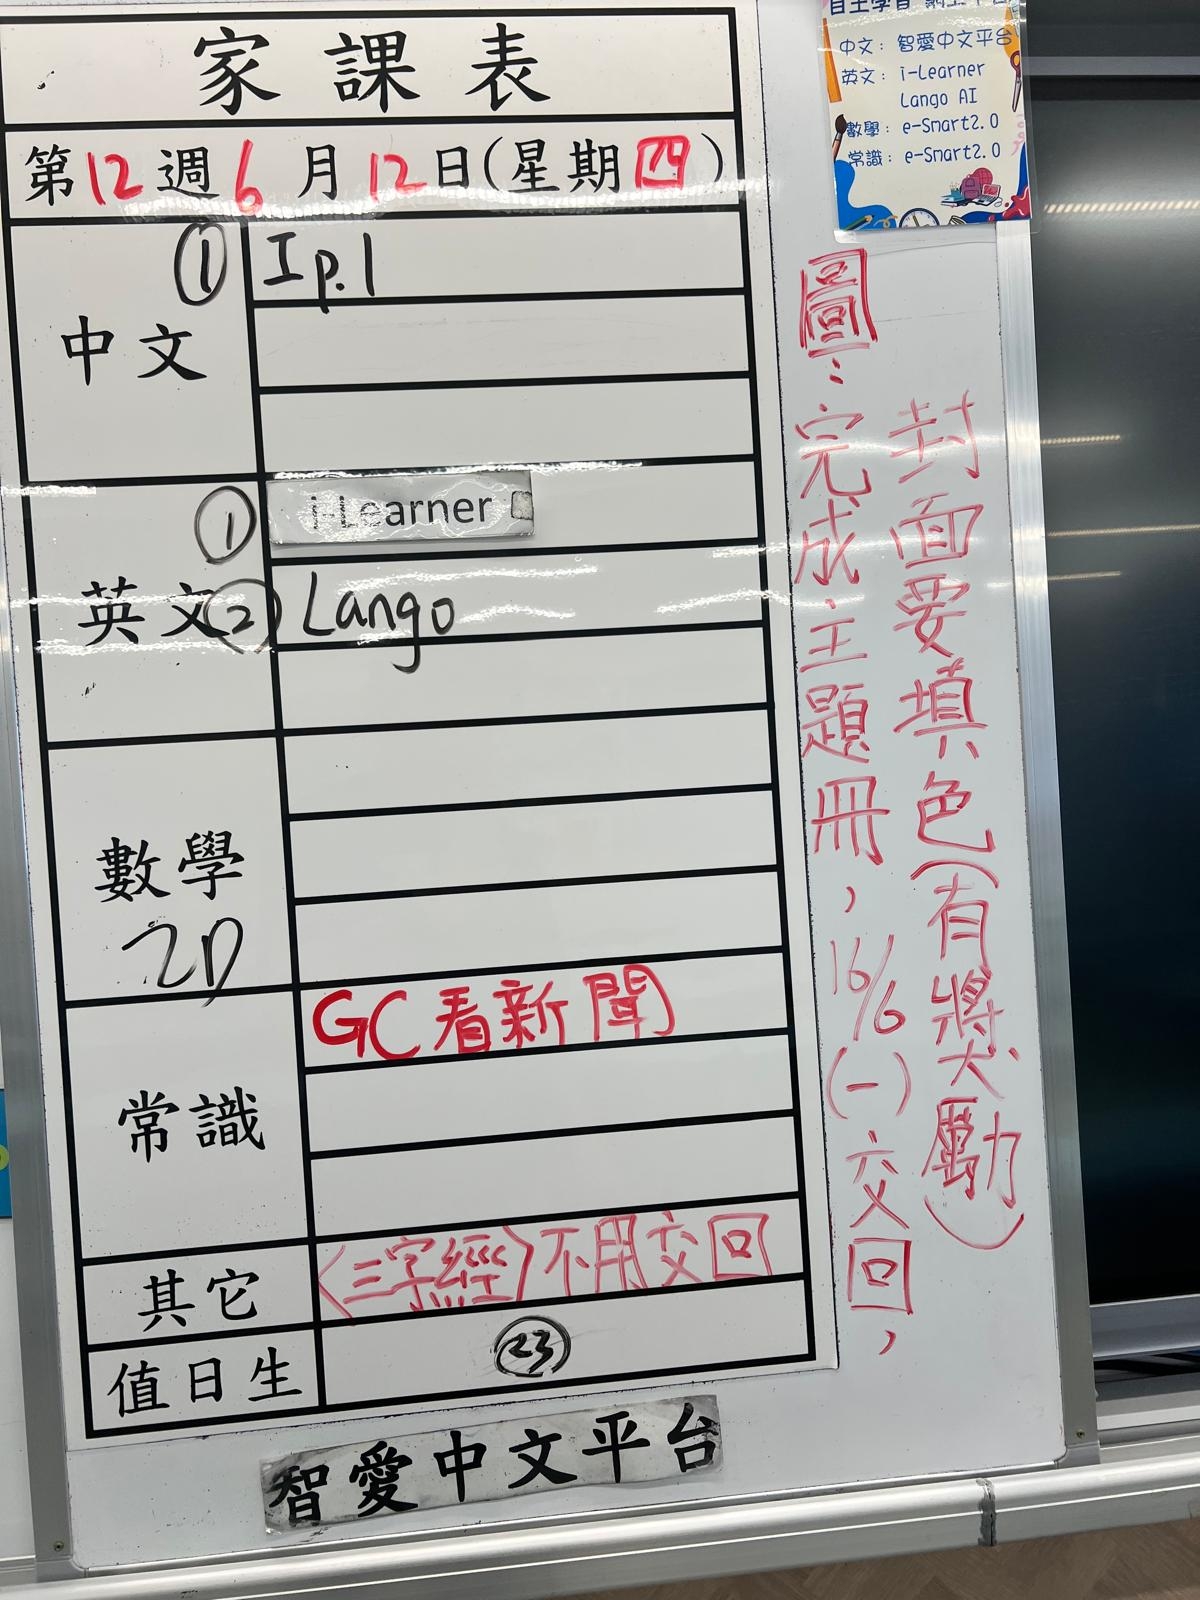 家課表
第12週6月12日(星期四)
中文
① Ip.1
英文
① i-Learner
② Lango
數學
2D
常識
GC看新聞
其它
〈三字經〉不用交回
值日生
㉓
智愛中文平台
圖：完成主題冊，16/6(一)交回，
封面要填色(有獎勵)
自主學習
中文：智愛中文平台
英文：i-Learner
Lango AI
數學：e-Smart2.0
常識：e-Smart2.0